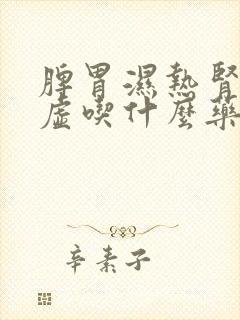 脾胃濕熱腎
虛喫什麼藥
辛素子